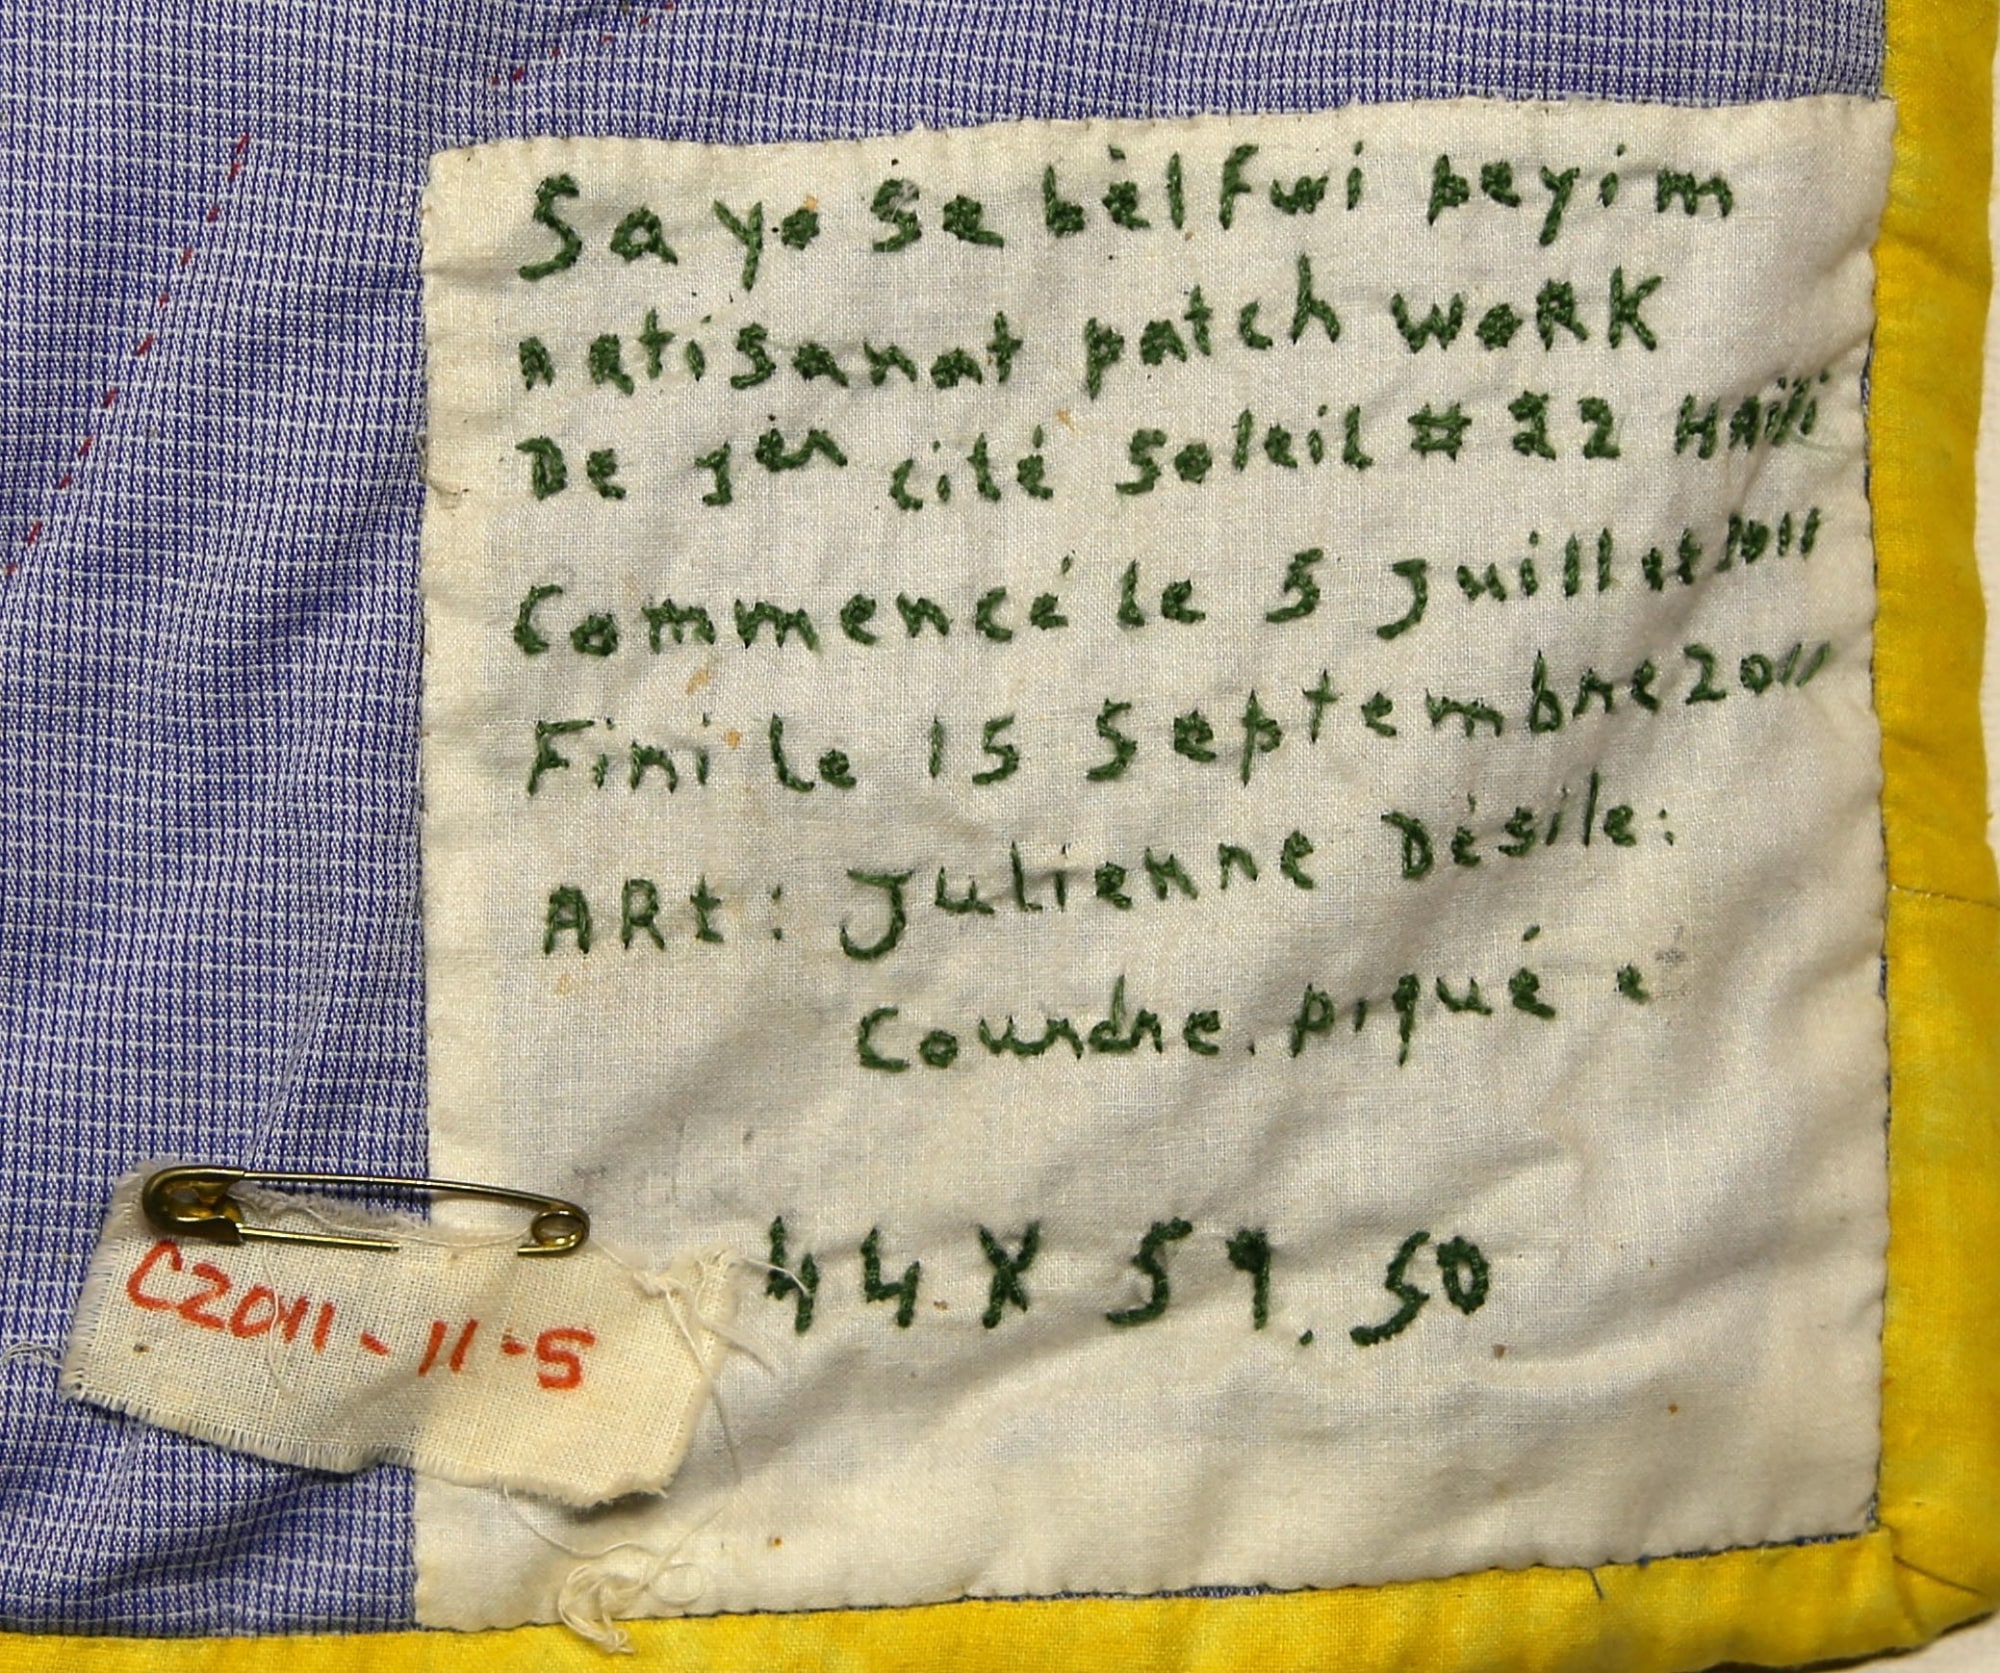 Sa yo se bèl Fwi peyi m
Artisanat patch woRK
De 1er cité Soleil # 22 HAiti
Commencé le 5 Juillet 2011
Fini le 15 Septembre 2011
ARt: Julienne Désile:
Courdre. piqué e
44 X 59.50
C2011-11-5